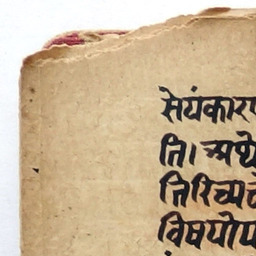 सेयंकारण
ति। अथे
तिरिच्यते
विषयोप